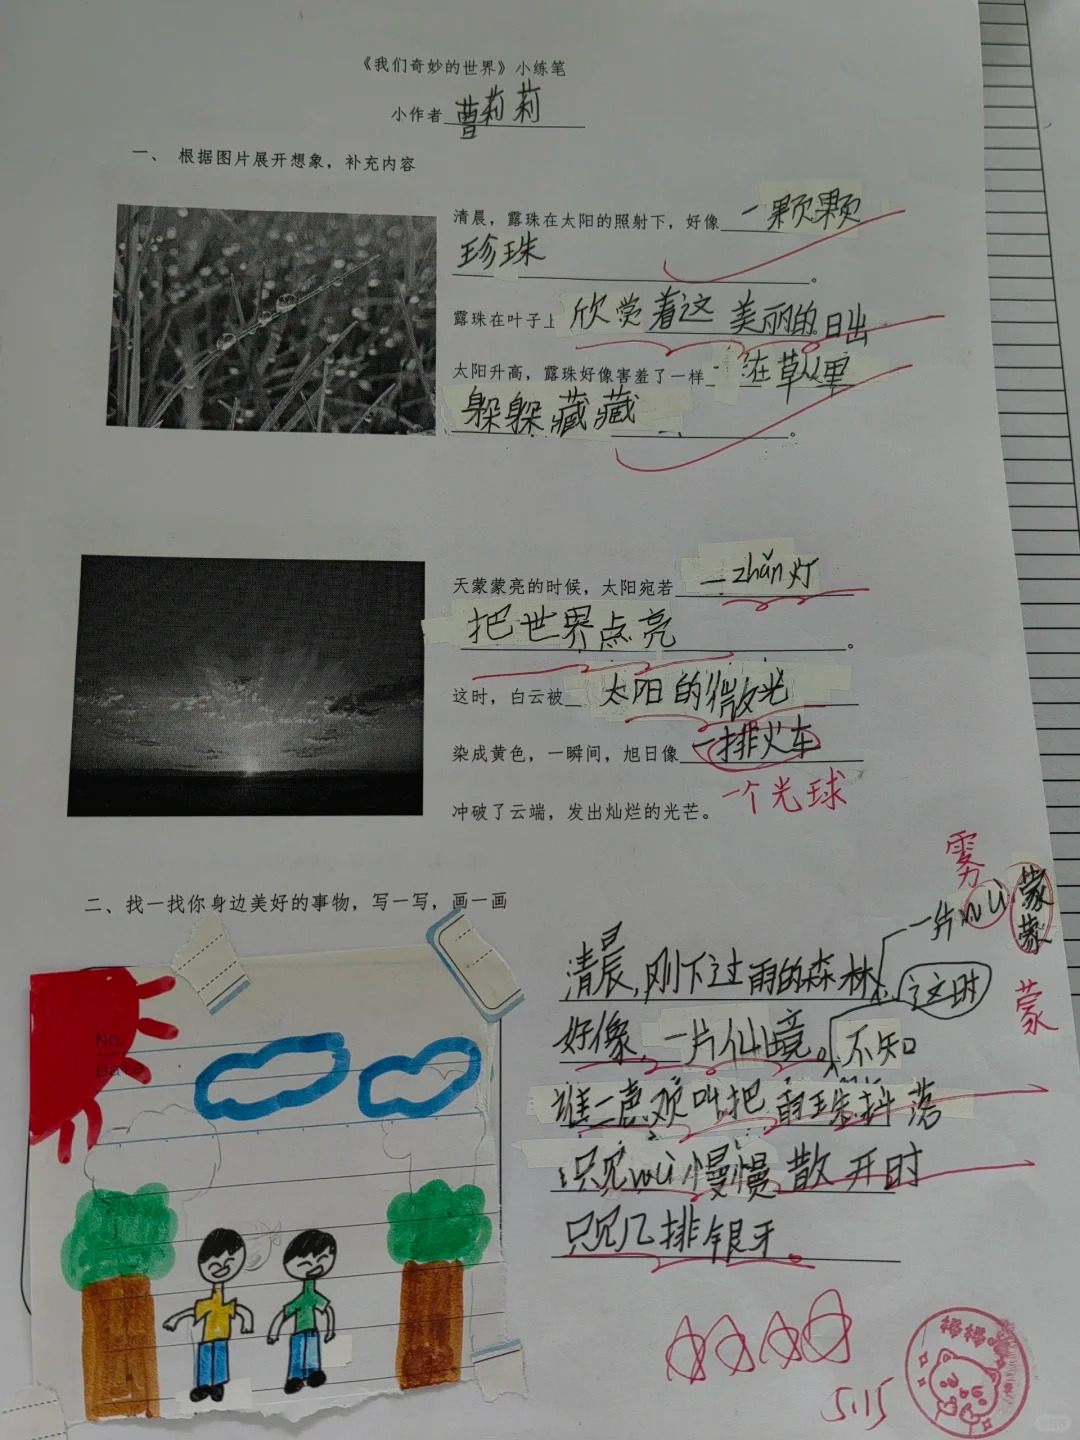 《我们奇妙的世界》小练笔
小作者 曹莉莉
一、 根据图片展开想象，补充内容
清晨，露珠在太阳的照射下，好像一颗颗
珍珠。
露珠在叶子上欣赏着这美丽的日出
太阳升高，露珠好像害羞了一样 在草从里
躲躲藏藏。
天蒙蒙亮的时候，太阳宛若一zhǎn灯
把世界点亮。
这时，白云被太阳的微光
染成黄色，一瞬间，旭日像一排火车
一个光球
冲破了云端，发出灿烂的光芒。
二、找一找你身边美好的事物，写一写，画一画
雾
一片wù蒙蒙
蒙
清晨，刚下过雨的森林
这时
好像一片仙境。不知
谁一声欢叫把雨珠抖落
只见wù慢慢散开时
只见几排银牙。
No.
Date
5.15
棒棒